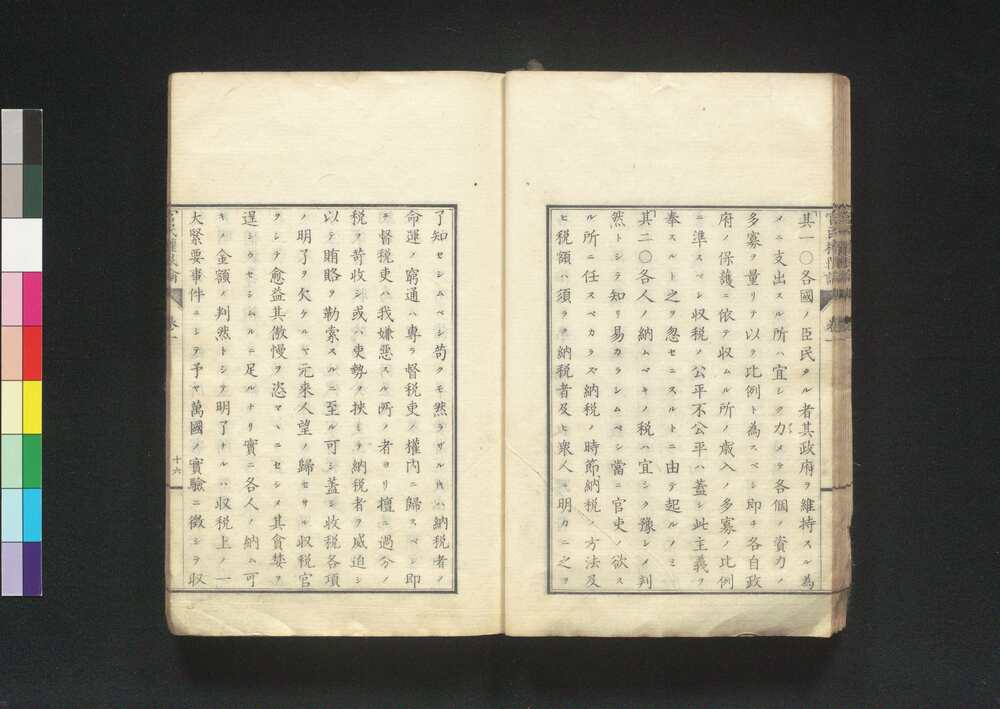 「其一〇各國ノ臣民タル者其政府ヲ維持スル為
メニ支出スル所ハ宜シク力メテ各個ノ資力ノ
多寡ヲ量リテ以テ比例ト為スベシ即チ各自政
府ノ保護ニ依テ収ムル所ノ歳入ノ多寡ノ比例
ニ準スベシ収税ノ公平不公平ハ蓋シ此主義ヲ
奉スルト之ヲ忽セニスルトニ由テ起ルノミ
「其二〇各人ノ納ムベキノ税ハ宜シク豫シメ判
然トシテ知リ易カラシムベシ當ニ官吏ノ欲ス
ル所ニ任スベカラズ納税ノ時節納税ノ方法及
ヒ税額ハ須ラク納税者及ヒ衆人ニ明カニ之ヲ
了知セシムベシ苟クモ然ラザル片ハ納税者ノ
命運ノ窮通ハ專ラ督税吏ノ權内ニ歸スベシ即
チ督税吏ハ我嫌悪スル所ノ者ヨリ擅ニ過分ノ
税ヲ苛收シ或ハ吏勢ヲ挾ミテ納税者ヲ威迫シ
以テ賄賂ヲ勒索スルニ至ル可シ蓋シ收税各項
ノ明了ヲ欠ケルヤ元来人望ノ歸セサル収税官
ヲシテ愈益其傲慢ヲ恣マヽニセシメ其貪婪ヲ
逞シウセシムルニ足ルナリ實ニ各人ノ納ム可
キノ金額ノ判然トシテ明了ナルハ収税上ノ一
大緊要事件ニシテ予ヤ萬國ノ實驗ニ徴シテ収
卷一
十六